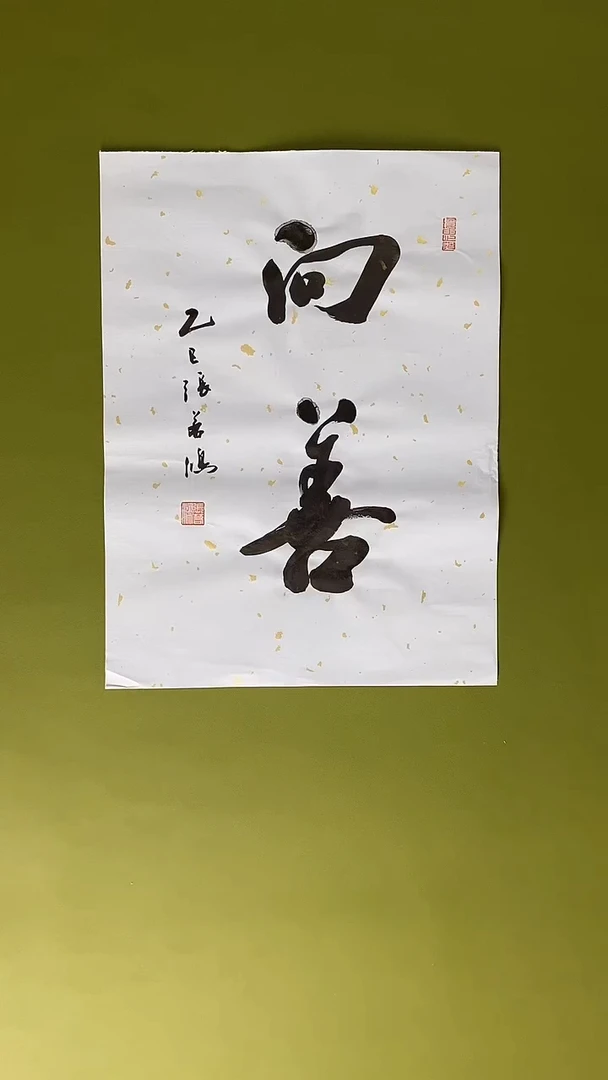 向善
乙巳張善鴻